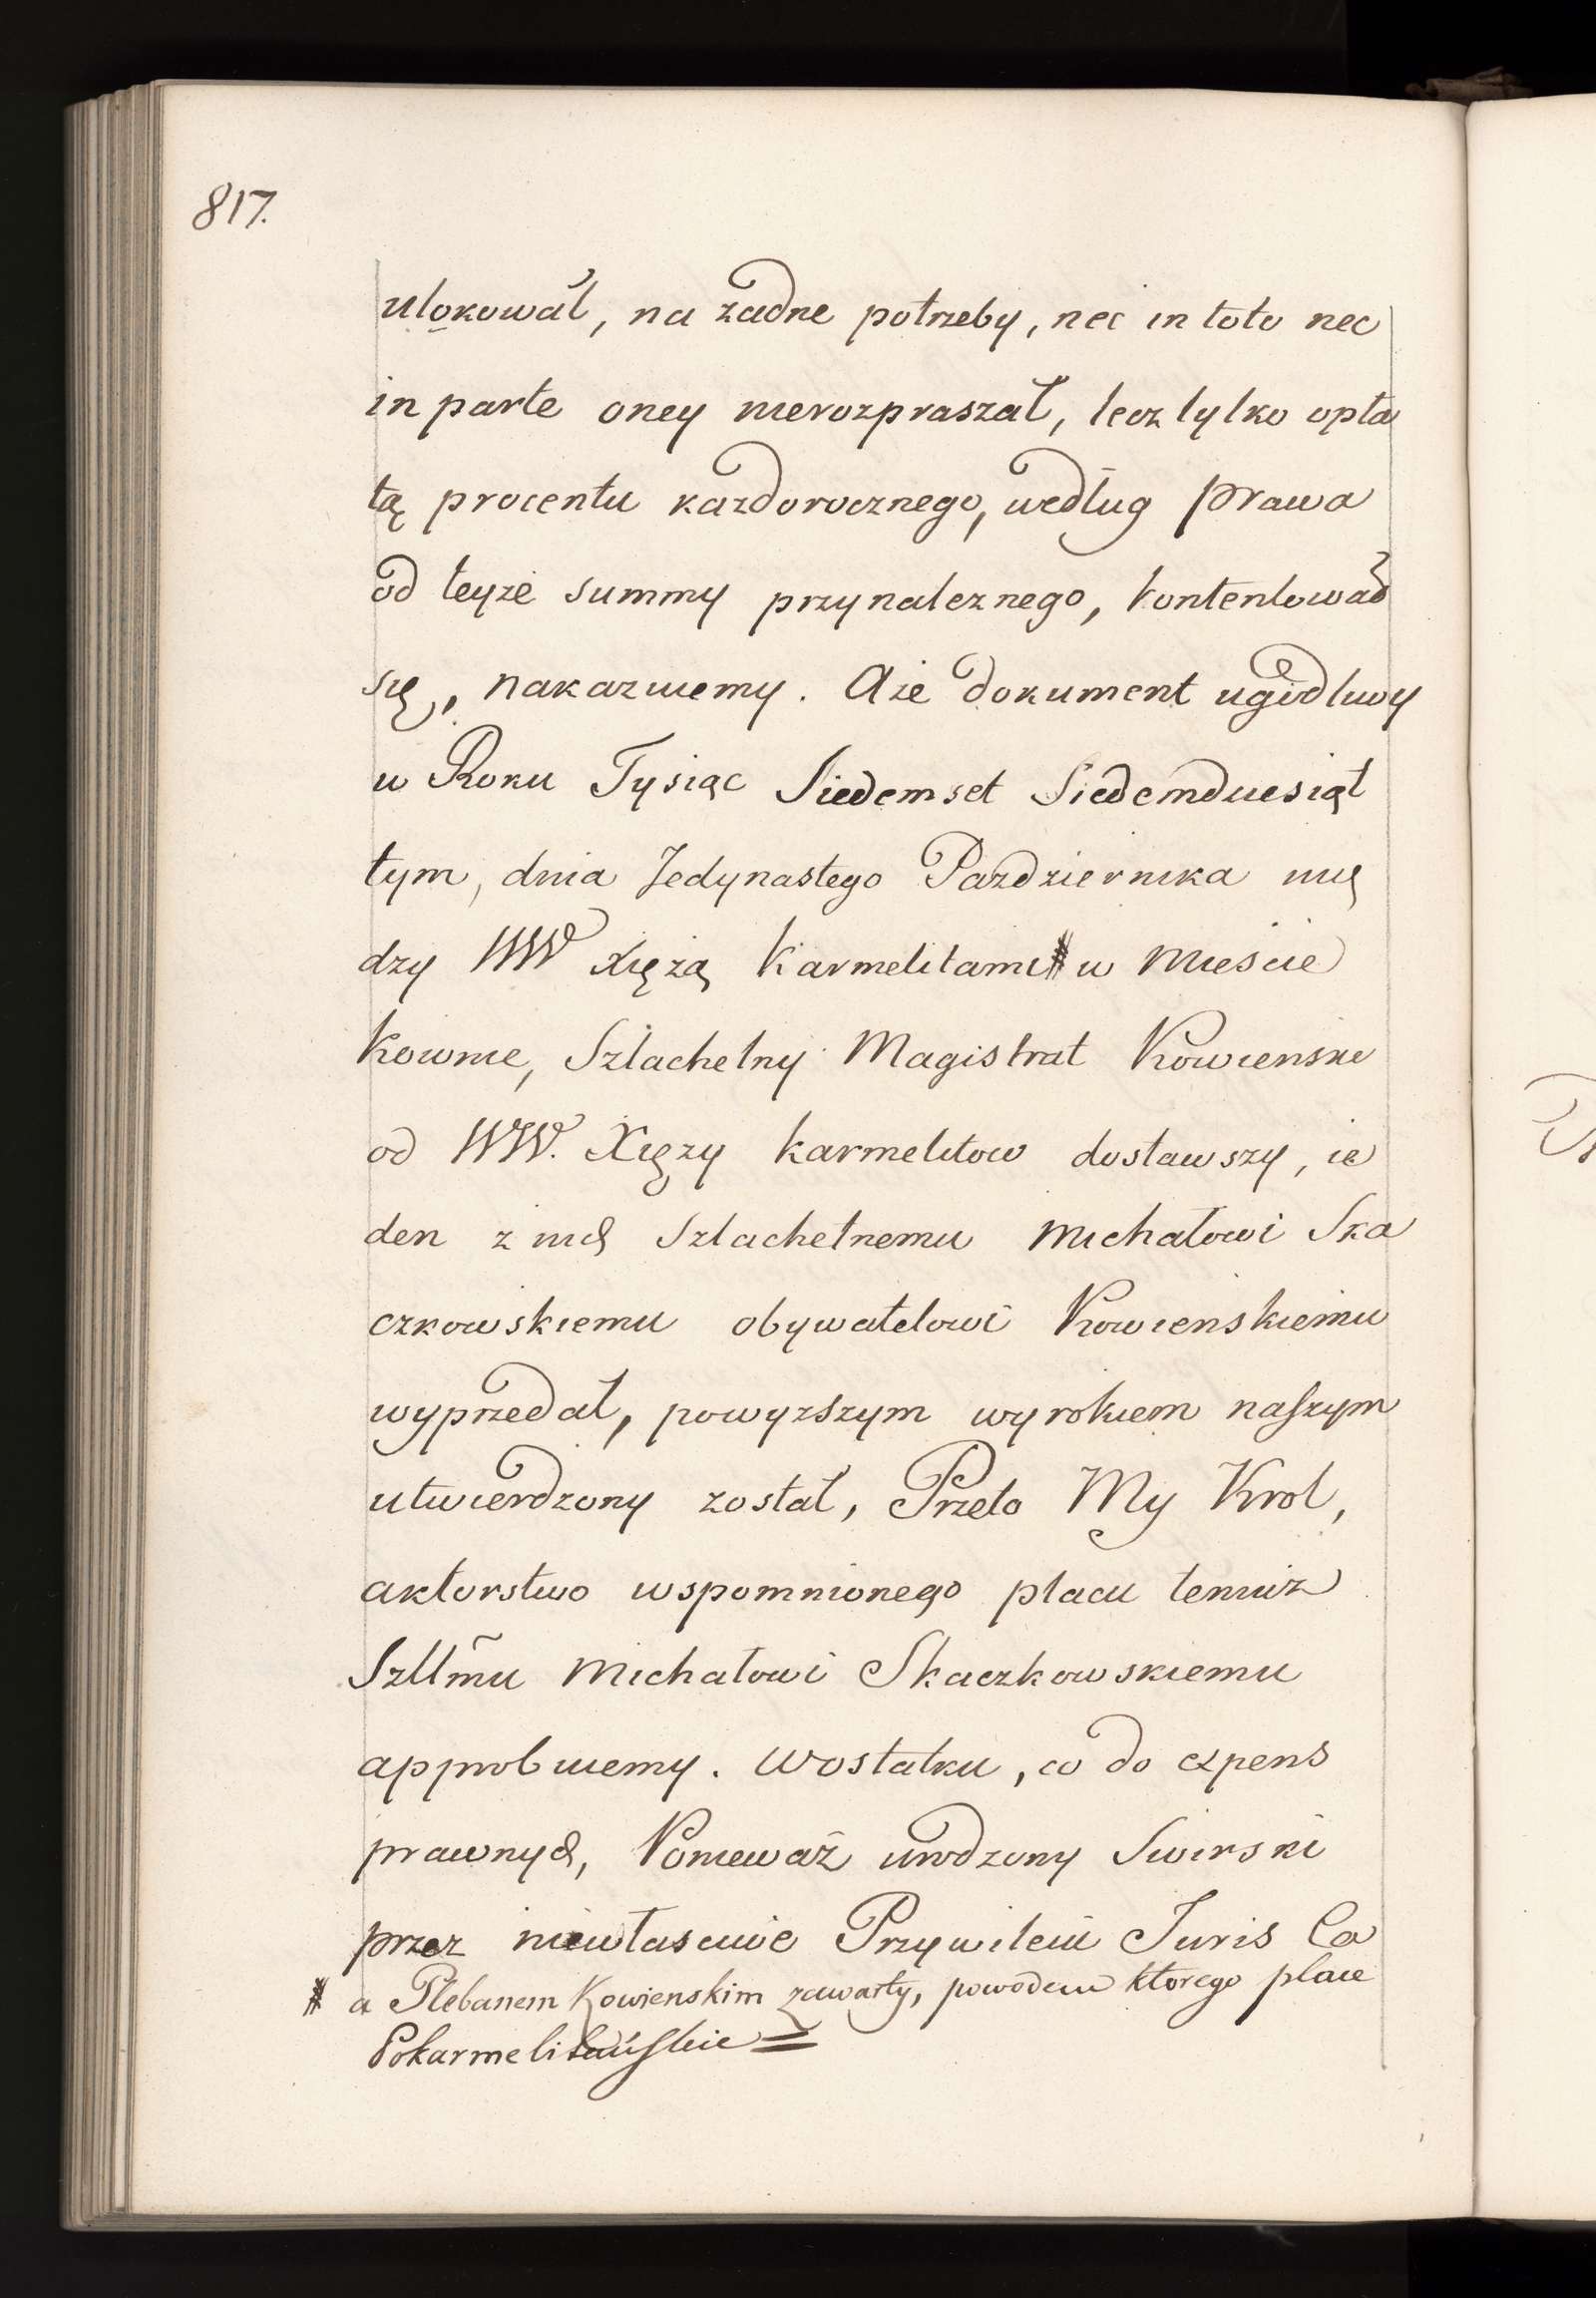 817.
ulokował, na żadne potrzeby, nec in toto nec
in parte oney nierozpraszał, lecz tylko opła
tą procentu kazdorocznego, według prawa
od teyże summy przynaleznego, kontentował
się, nakazuiemy. Aże dokument ugodliwy
w Roku Tysiąc Siedemset Siedemdziesiąt
tym, dnia Jedynastego Pazdziernika mię
dzy WW Xiężą Karmelitami # w Mieście
Kownie, Szlachetny Magistrat Kowienski
od WW. Xięży Karmelitow dostawszy, ie
den z nich Szlachetnemu Michałowi Ska
czkowskiemu obywatelowi Kowienskiemu
wyprzedał, powyzszym wyrokiem naszym
utwierdzony został, Przeto My Krol,
aktorstwo wspomnionego placu temuż
Szlt̃mu Michałowi Skaczkowskiemu
approbuiemy. Wostatku, co do expens
prawnych, Ponieważ urodzony Swirski
przez niewłasciwie Przywileiu Juris Ca
# a Plebanem Kowienskim zawarty, powodem ktorego place
Pokarmelitańskie =